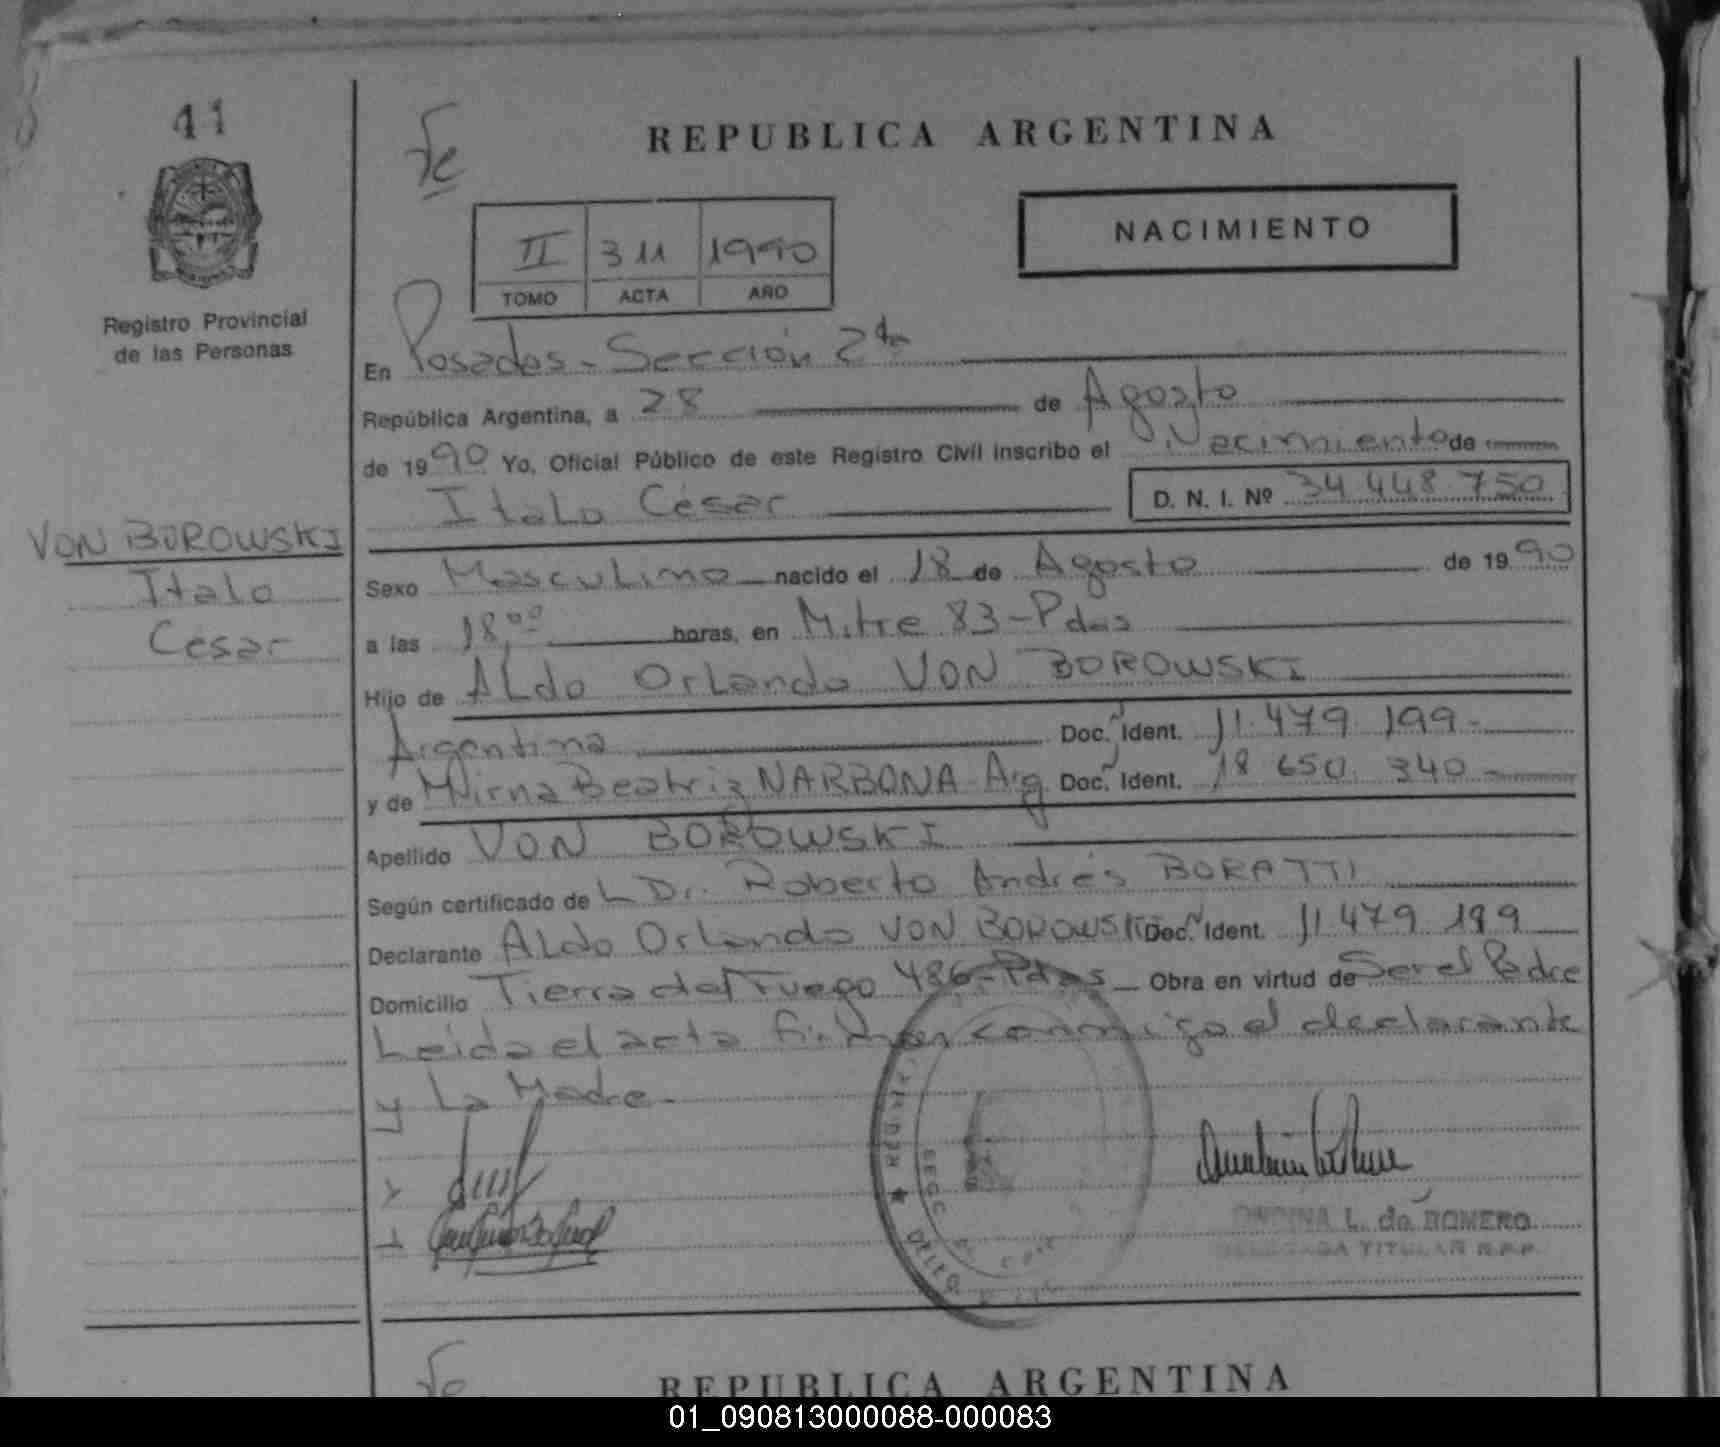 41
Registro Provincial
de las Personas
VON BOROWSKI
Italo
César
Fe
REPUBLICA ARGENTINA
NACIMIENTO
II 311 1990
TOMO ACTA AÑO
En Posadas - Sección 2da
República Argentina, a 28 de Agosto
de 1990 Yo, Oficial Público de este Registro Civil inscribo el Nacimiento de
Italo César D. N. I. Nº 34 448.750
Sexo Masculino nacido el 18 de Agosto de 1990
a las 18,00 horas, en Mitre 83-Pdas
Hijo de ALdo OrLando VON BOROWSKI
Argentina Doc. Ident. 11.479.199-
y de Mirna Beatriz NARBONA-Arg. Doc. Ident. 18 650. 340-
Apellido VON BOROWSKI
Según certificado de L Dr. Roberto Andrés BORATTI
Declarante ALdo OrLando VON BOROWSKI Doc. Ident. 11 479.199
Domicilio Tierra del Fuego 486-Pdas Obra en virtud de Ser el Padre
Leida el acta firman conmigo el declarante
y La Madre-
L. de ROMERO
DELEGADA TITULAR R.P.P.
Fe
REPUBLICA ARGENTINA
01_090813000088-000083